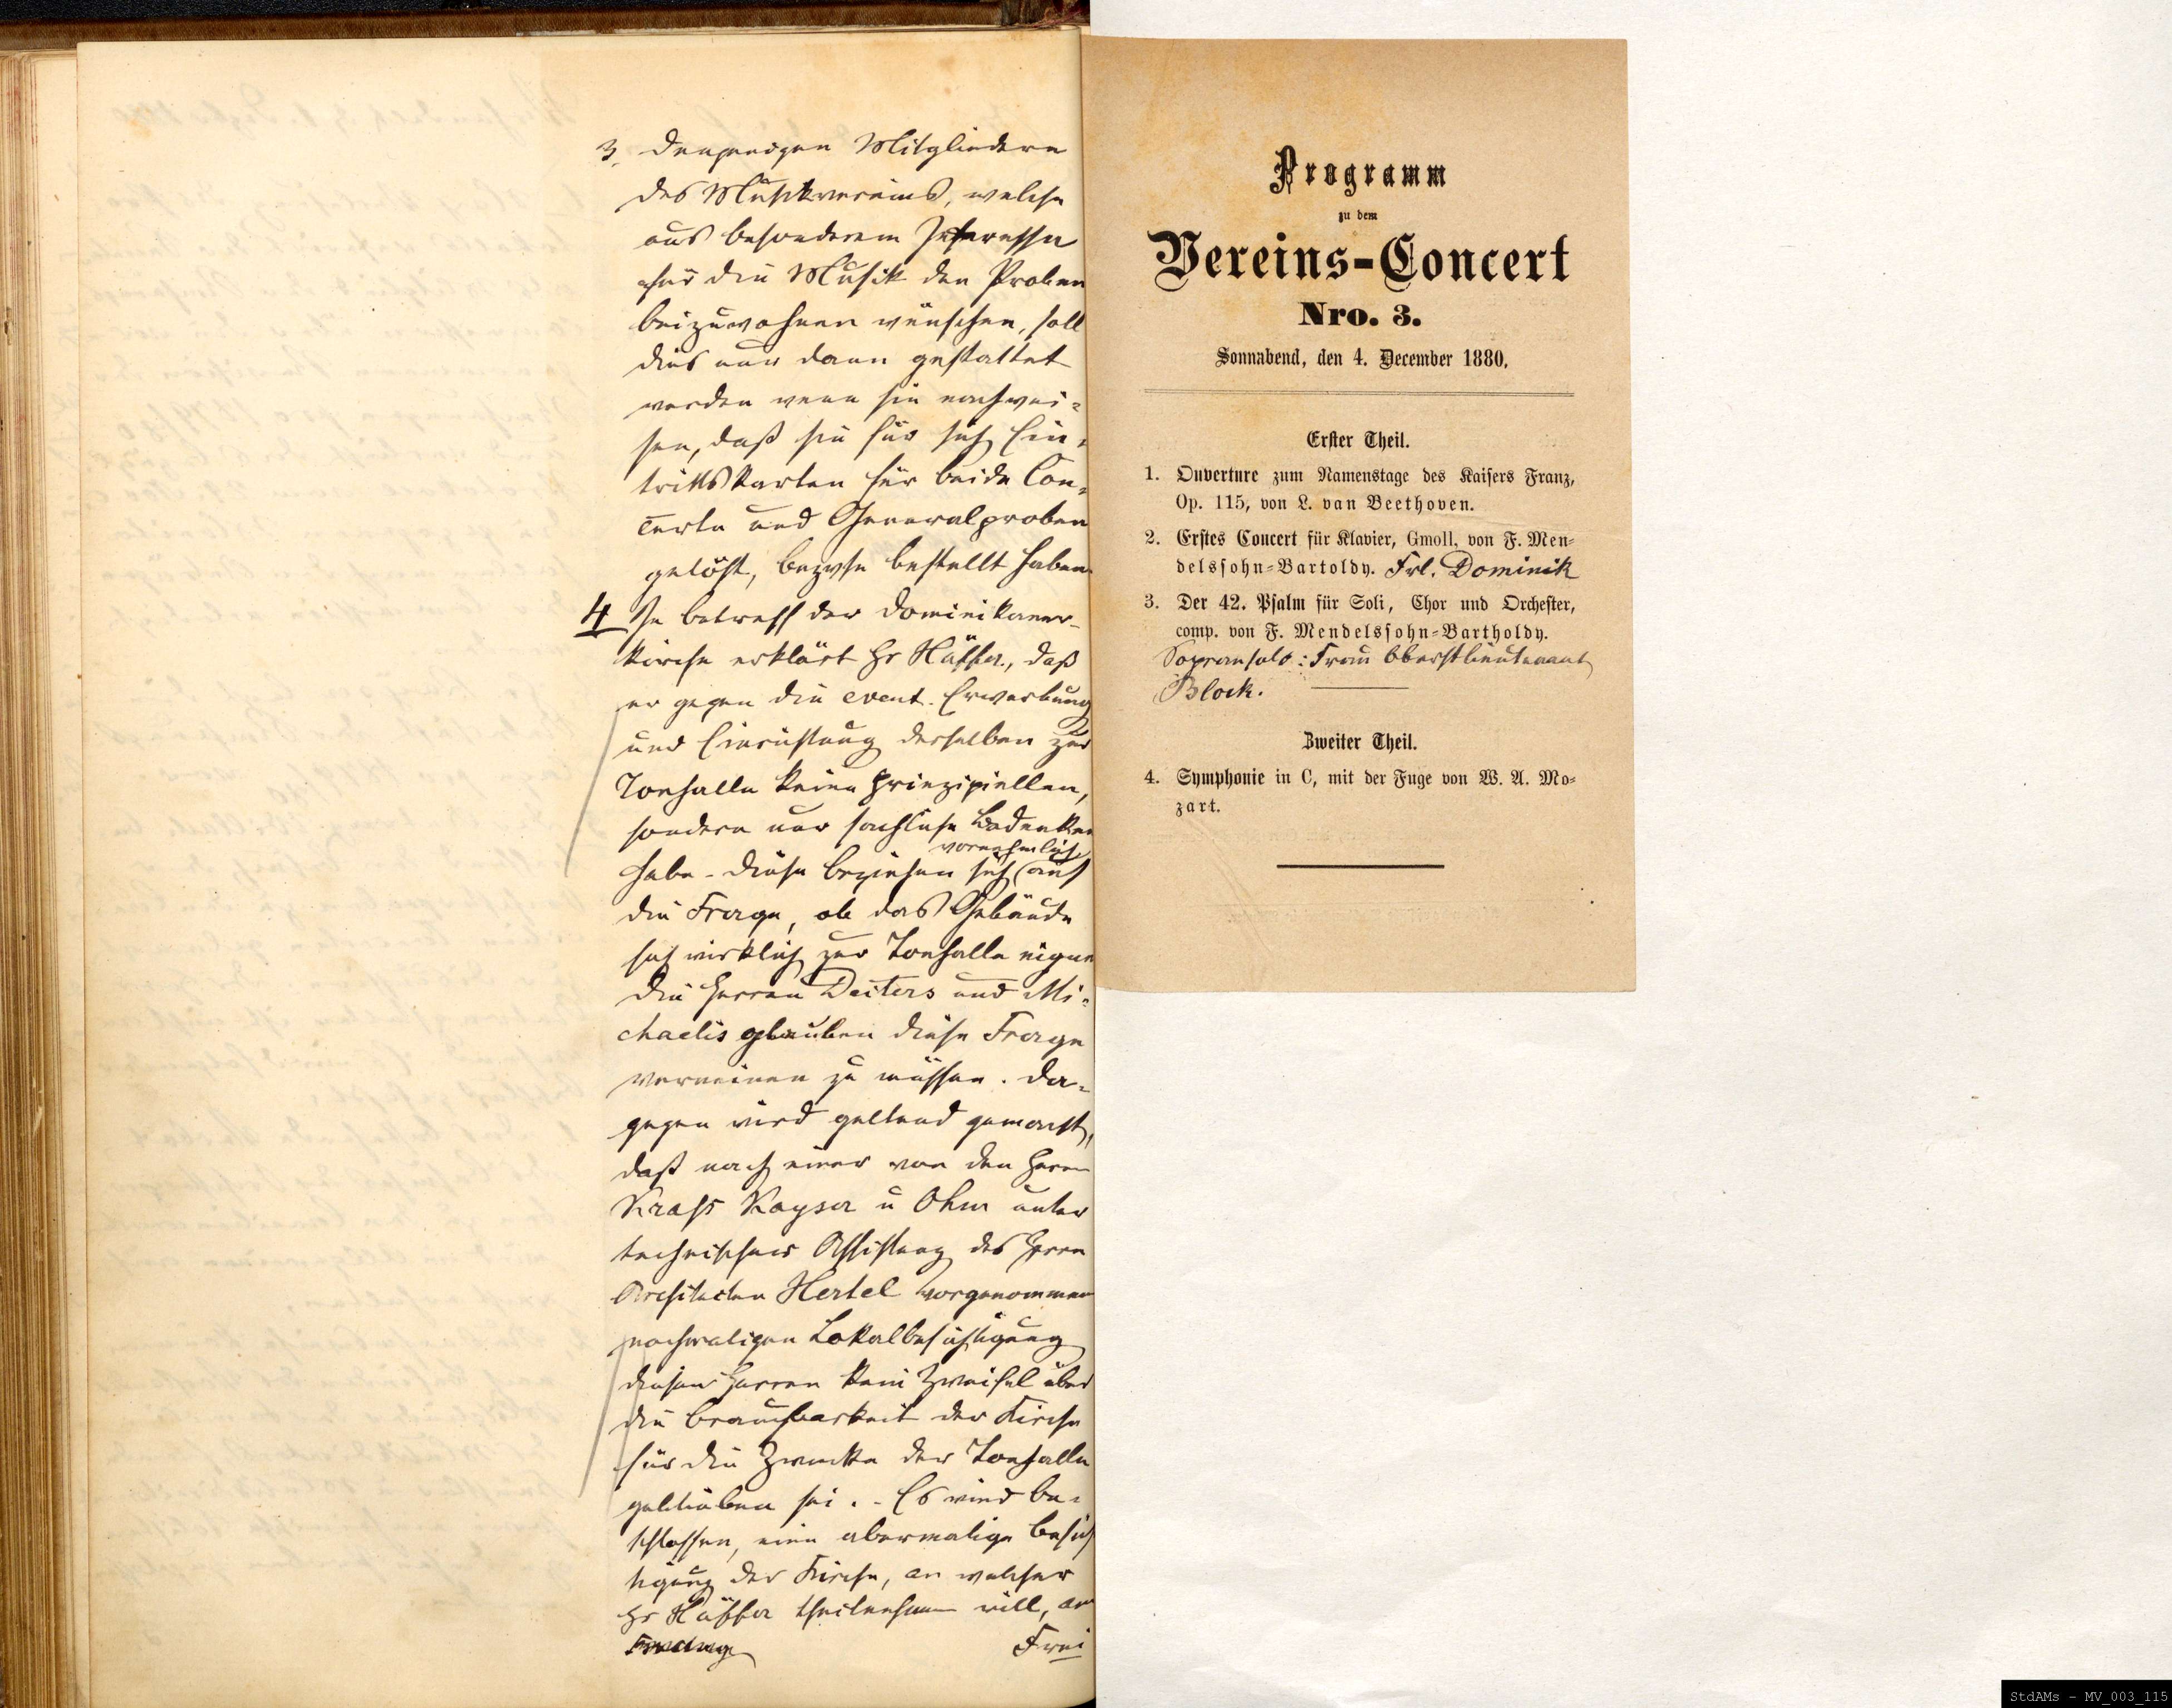 3. Denjenigen Mitgliedern
des Musikvereins, welche
aus besonderem Interesse
für die Musik den Proben
beizuwohnen wünschen, soll
dies nur dann gestattet
werden wenn sie nachwei-
sen, daß sie für sich Ein-
trittskarten für beide Con-
certe und Generalproben
gelöst, bezwse bestellt haben
4 In betreff der Dominikaner-
kirche erklärt Hr Hüffer, daß
er gegen die event. Erwerbung
und Einrichtung derselben zur
Tonhalle keine prinzipiellen,
sondern nur sachliche Bedenken
habe - diese beziehen sich vornehmlich auf
die Frage, ob das Gebäude
sich wirklich zur Tonhalle eigne
die Herren Deiters und Mi-
chaelis glauben diese Frage
verneinen zu müssen. Da-
gegen wird geltend gemacht,
daß nach einer von den Herrn
Krass Kayser u Ohm unter
technischer Assistenz des Herrn
Architecten Hertel vorgenommen
nochmaligen Lokalbesichtigung
diesen Herren kein Zweifel über
die Brauchbarkeit der Kirche
für die Zwecke der Tonhalle
geblieben sei. - Es wird be-
schlossen, eine abermalige Besich
tigung der Kirche, an welcher
Hr Hüffer theilnehmen will, am
Frei
Programm
zu dem
Vereins-Concert
Nro. 3.
Sonnabend, den 4. December 1880.
Erster Theil.
1. Ouverture zum Namenstage des Kaisers Franz,
Op. 115, von L. van Beethoven.
2. Erstes Concert für Klavier, Gmoll, von F. Men-
delssohn-Bartoldy. Frl. Dominik
3. Der 42. Psalm für Soli, Chor und Orchester,
comp. von F. Mendelssohn-Bartholdy.
Sopransolo: Frau Oberstlieutenant
Block.
Zweiter Theil.
4. Symphonie in C, mit der Fuge von W. A. Mo-
zart.
StdAMs - MV_003_115